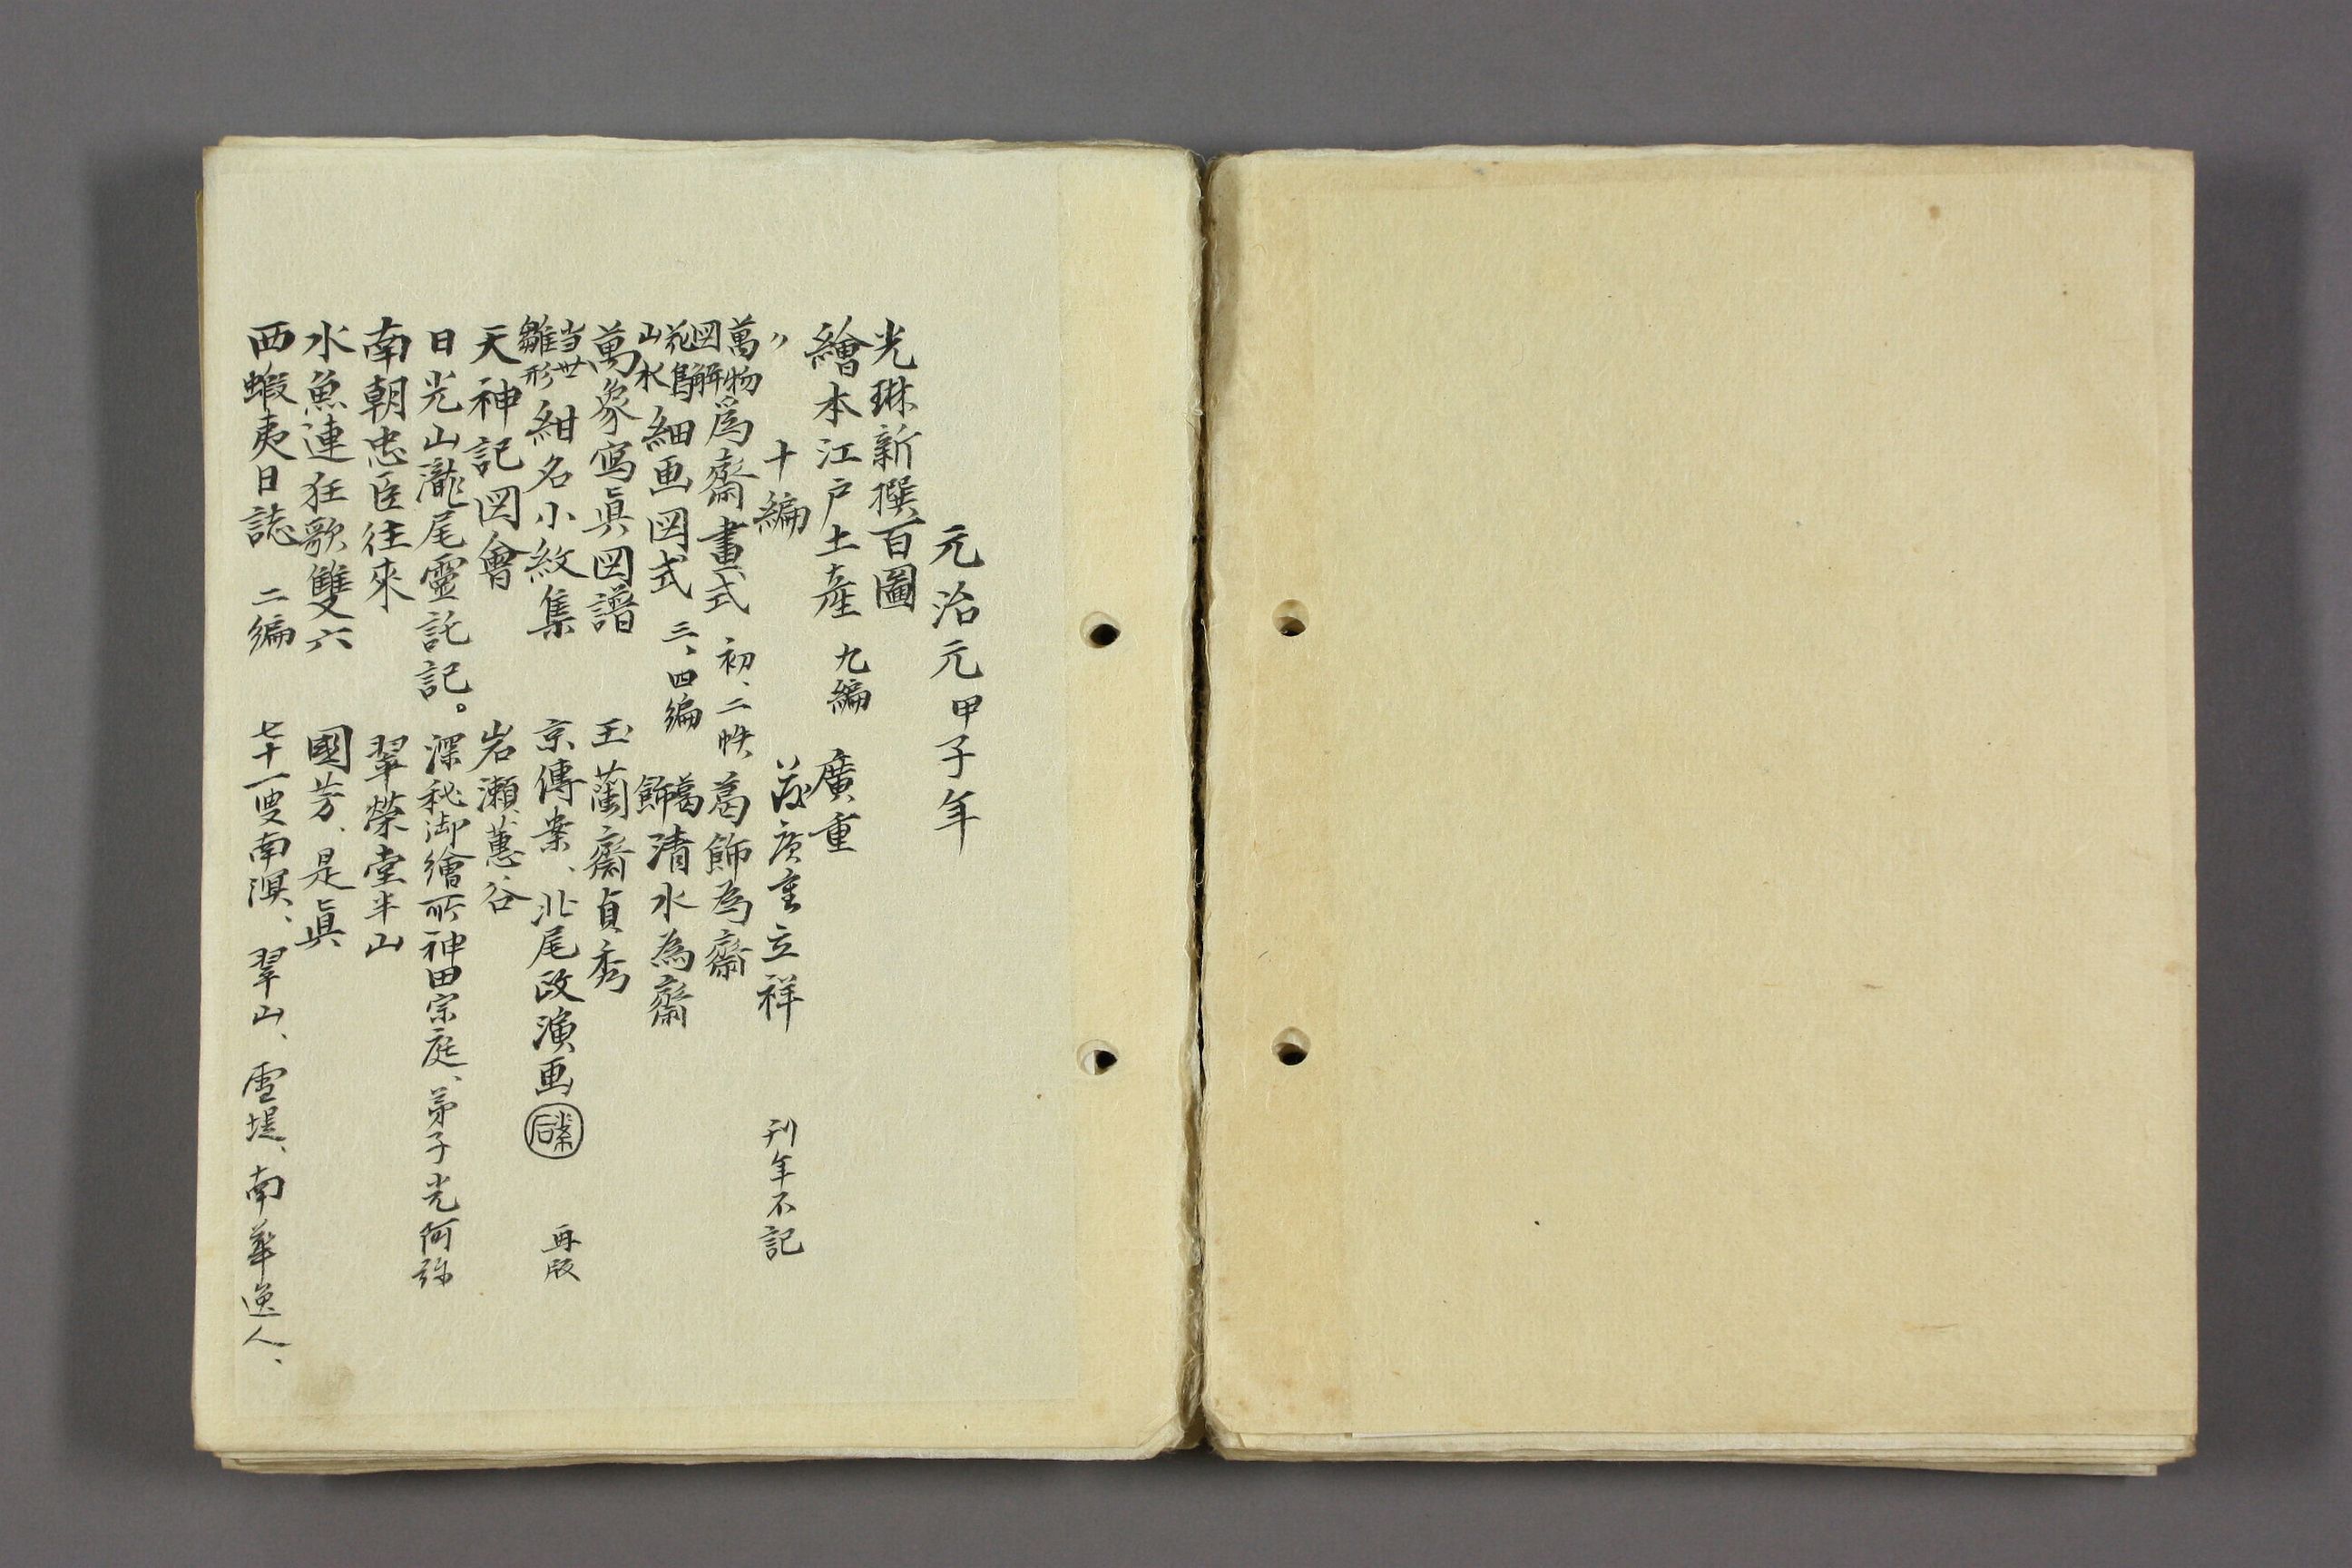 元治元甲子年
光琳新撰百圖
繪本江戸土産 九編 廣重
〃 十編 廣重立祥 刊年不記
萬物図解爲齋畫式 初、二帙 葛飾為齋
花鳥山水細画図式 三、四編 葛飾清水為齋
萬象寫眞図譜 玉蘭齋貞秀
当世雛形紺名小紋集 京傳案、北尾政演画 再版
天神記図會 岩瀬蕙谷
日光山瀧尾靈託記。 深秘御繪所神田宗庭、弟子光阿弥
南朝忠臣往來 翠榮堂半山
水魚連狂歌雙六 國芳、是眞
西蝦夷日誌 二編 七十一叟南溟、翠山、雪堤、南華逸人、